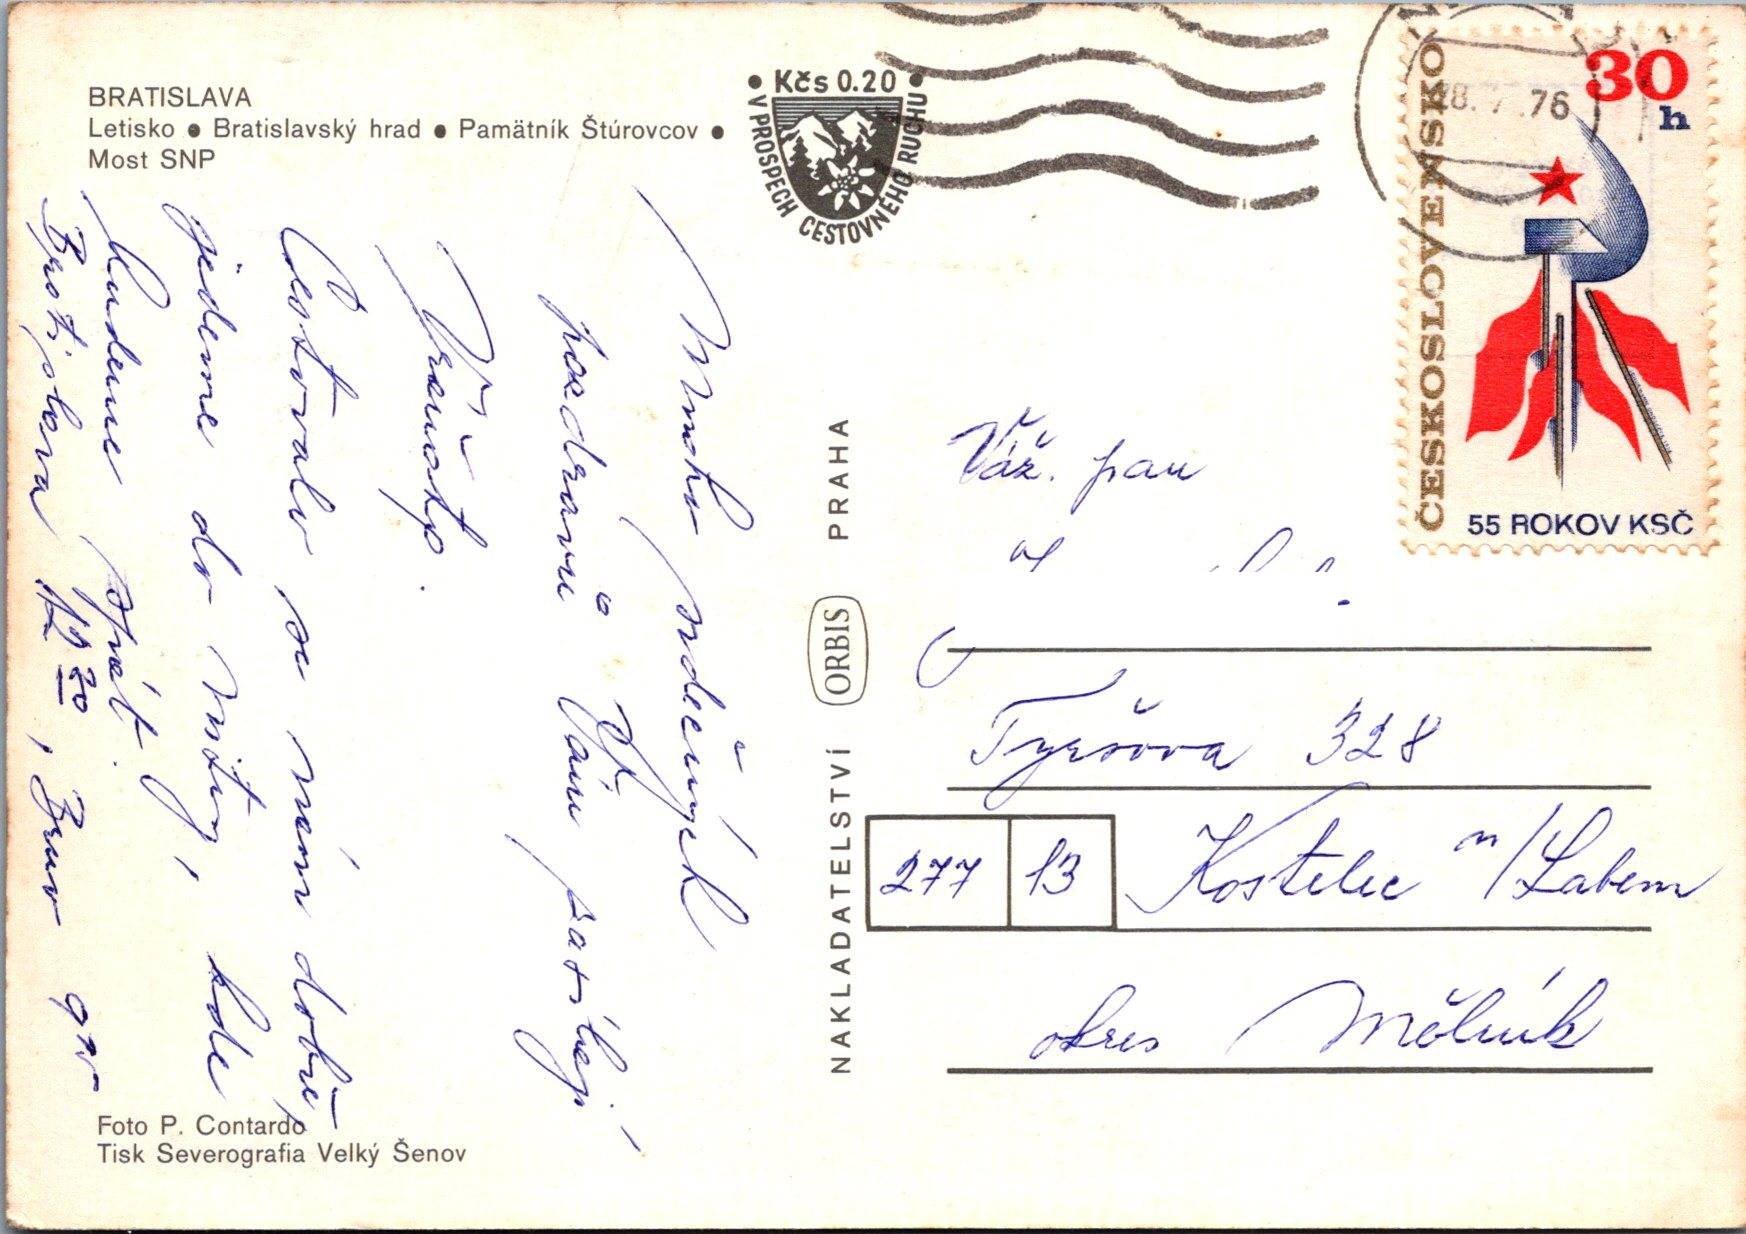 BRATISLAVA
Letisko ● Bratislavský hrad ● Pamätník Štúrovcov ●
Most SNP
Kčs 0.20
V PROSPECH CESTOVNÉHO RUCHU
28. 7. 76
ČESKOSLOVENSKO
30
h
55 ROKOV KSČ
Mnoho srdečných
pozdravů Vám zasílají
Cestovalo se nám dobře,
jedeme do
budeme opět.
Bratislava 12 20, Brno
NAKLADATELSTVÍ ORBIS PRAHA
Váž. pan
Tyršova 328
277 13 Kostelec n/Labem
okres Mělník
Foto P. Contardo
Tisk Severografia Velký Šenov